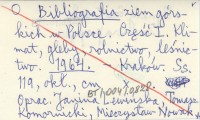 O Bibliografia ziem górs-
kich w Polsce. Część I. Kli-
mat, gleby, rolnictwo, leśnic-
two. 1961. Kraków. Ss.
119, okt., cm
Oprac. Janina Lewińska, Tomasz
Komornicki, Mieczysław Nowak.